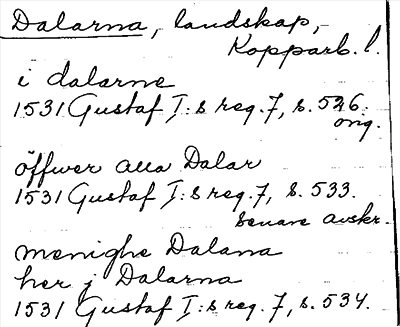 Dalarna, landskap,
Kopparb. l.
i dalarne
1531 Gustaf I:s reg. 7, s. 526.
orig.
öffwer alla Dalar
1531 Gustaf I:s reg. 7, s. 533.
senare avskr.
menighe Dalana
her j Dalarna
1531 Gustaf I:s reg. 7, s. 534.